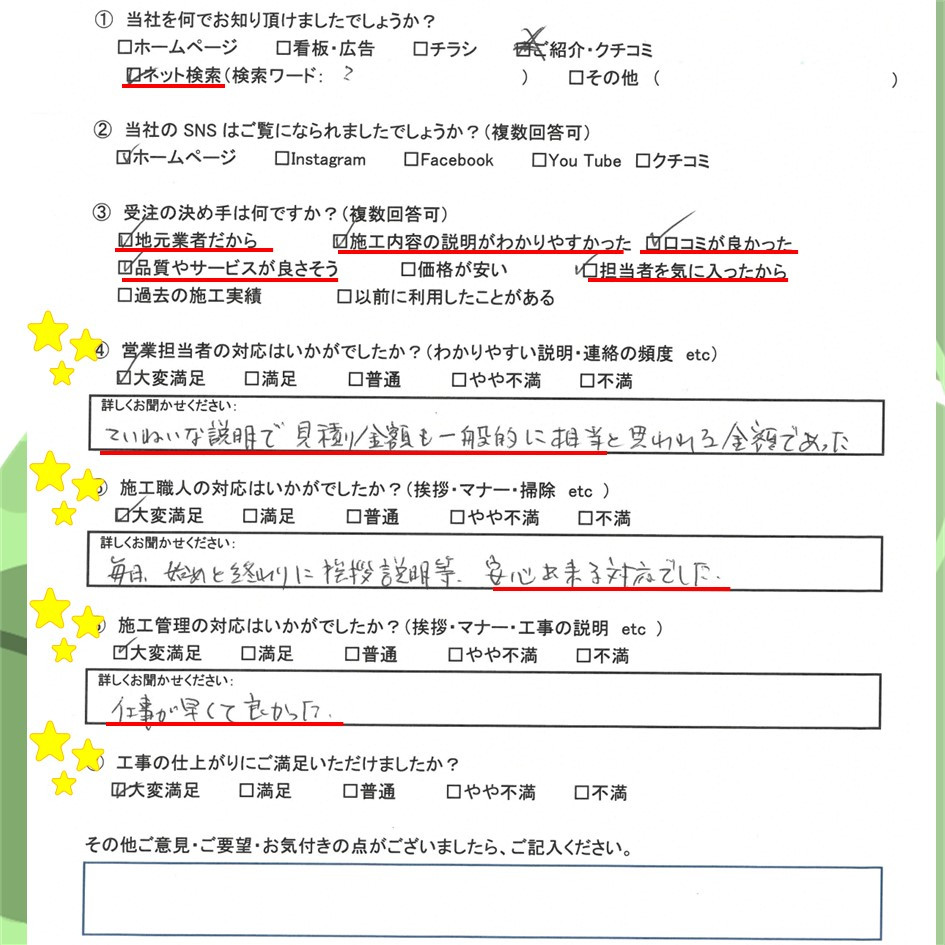 ① 当社を何でお知り頂けましたでしょうか？
□ホームページ □看板・広告 □チラシ ☑ご紹介・クチコミ
☑ネット検索（検索ワード： ？ ） □その他 （ ）
② 当社の SNS はご覧になられましたでしょうか？（複数回答可）
☑ホームページ □Instagram □Facebook □You Tube □クチコミ
③ 受注の決め手は何ですか？（複数回答可）
☑地元業者だから ☑施工内容の説明がわかりやすかった ☑口コミが良かった
☑品質やサービスが良さそう □価格が安い ☑担当者を気に入ったから
□過去の施工実績 □以前に利用したことがある
④ 営業担当者の対応はいかがでしたか？（わかりやすい説明・連絡の頻度 etc）
☑大変満足 □満足 □普通 □やや不満 □不満
詳しくお聞かせください：
ていねいな説明で見積り金額も一般的に相当と思われる金額であった
施工職人の対応はいかがでしたか？（挨拶・マナー・掃除 etc ）
☑大変満足 □満足 □普通 □やや不満 □不満
詳しくお聞かせください：
毎日、始めと終わりに挨拶説明等、安心出来る対応でした.
施工管理の対応はいかがでしたか？（挨拶・マナー・工事の説明 etc ）
☑大変満足 □満足 □普通 □やや不満 □不満
詳しくお聞かせください：
仕事が早くて良かった.
工事の仕上がりにご満足いただけましたか？
☑大変満足 □満足 □普通 □やや不満 □不満
その他ご意見・ご要望・お気付きの点がございましたら、ご記入ください。